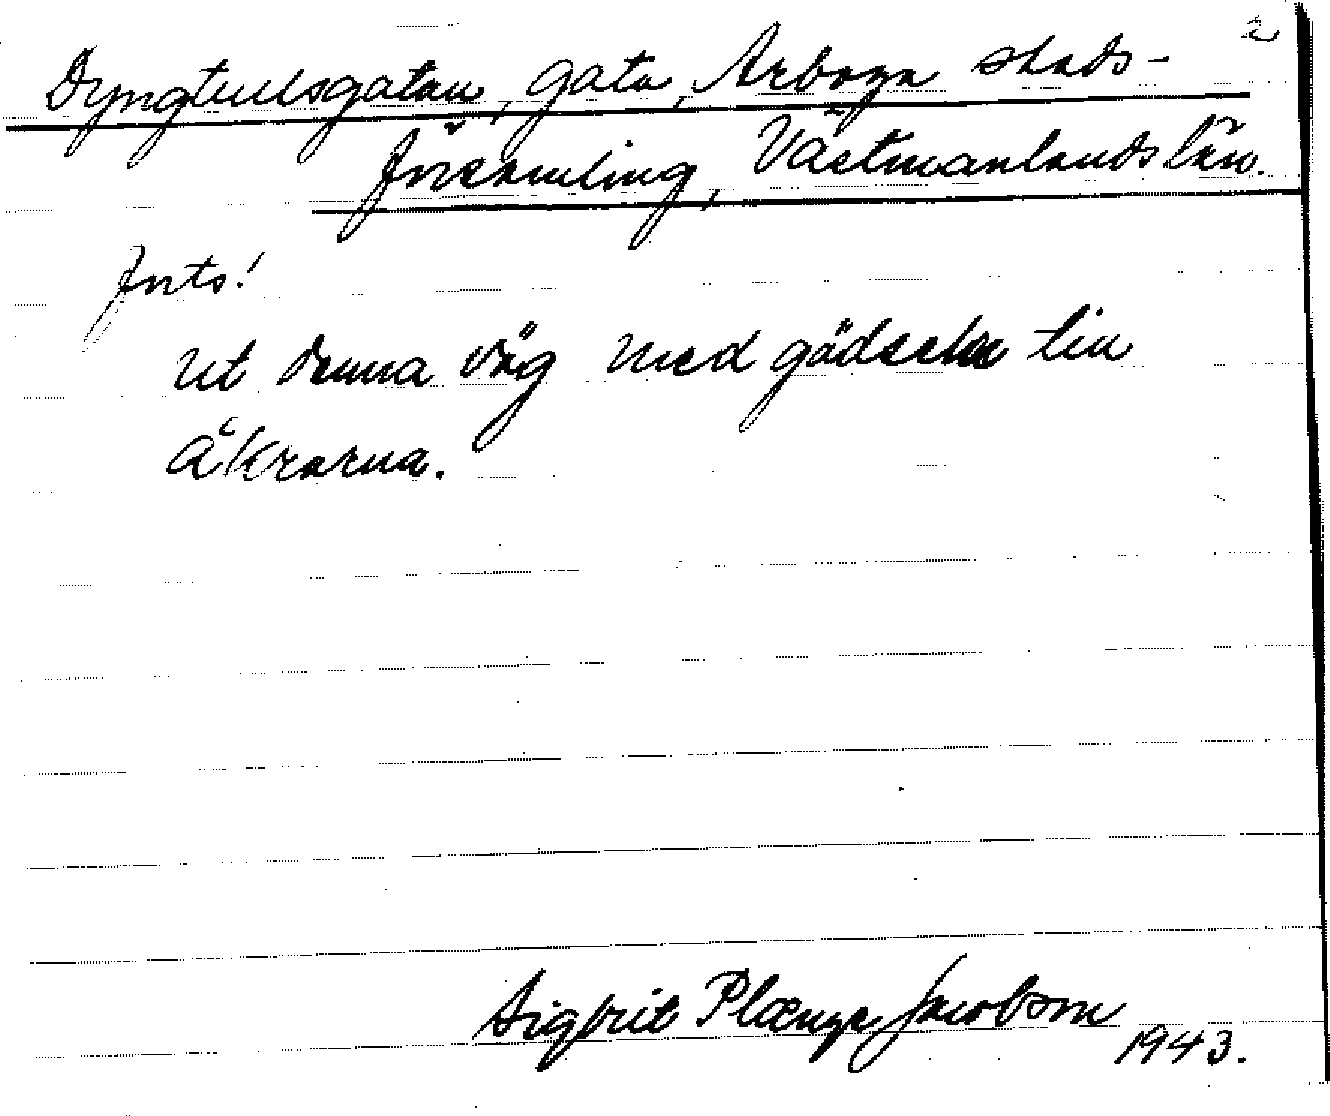 2
Dyngtullsgatan, gata, Arboga stads-
församling, Västmanlands län.
Forts!
ut denna väg med gödseln till
åkrarna.
Sigbrit Plænge Jacobson
1943.